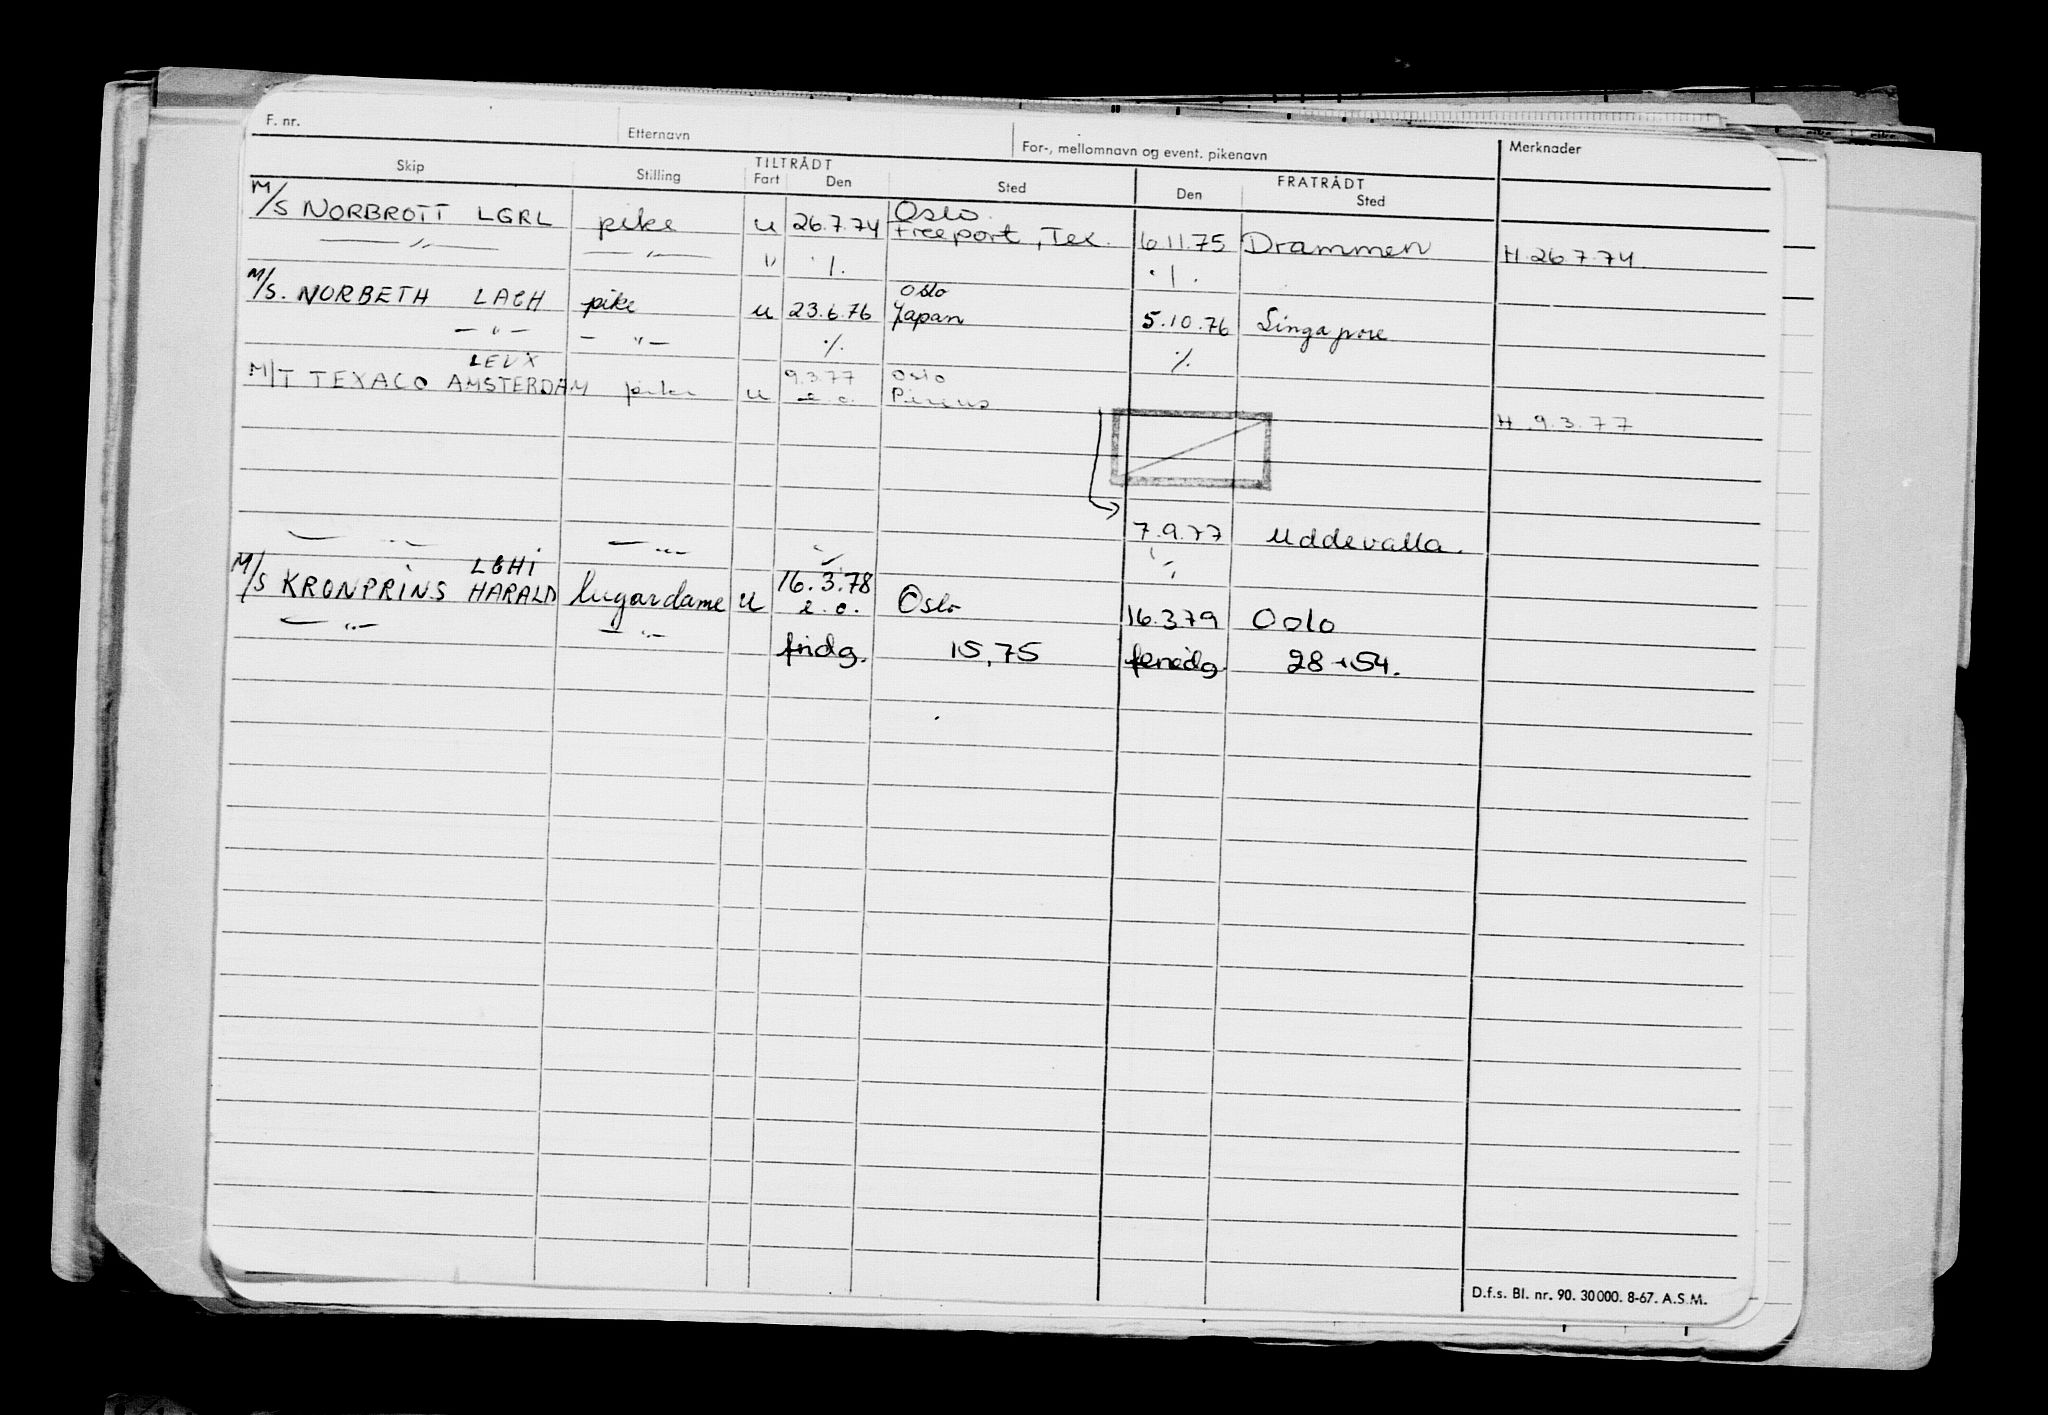 F. nr. Etternavn For-, mellomnavn og event. pikenavn Merknader
Skip Stilling TILTRÅDT Fart Den Sted FRATRÅDT Den Sted
M/S NORBROTT LGRL pike u 26.7.74 Oslo Freeport, Tex. 6.11.75 Drammen H. 26.7.74
— " — — " — " ·/. ·/.
M/S. NORBETH LACH pike u 23.6.76 Oslo Japan 5.10.76 Singapore
— " — — " — ·/. ·/.
M/T TEXACO AMSTERDAM LEVX pike u 9.3.77 e.o. Oslo Pireus H. 9.3.77
7.9.77 Uddevalla.
— " — — " — ·/. ·/.
M/S KRONPRINS HARALD LGHI lugardame u 16.3.78 e.o. Oslo 16.3.79 Oslo
— " — — " — fridg. 15,75 feriedg. 28+54.
D.f.s. Bl. nr. 90. 30 000. 8-67. A.S.M.